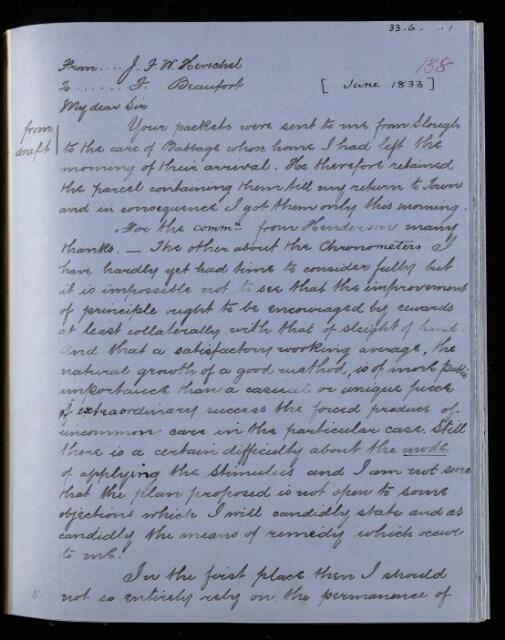 33-6. 1
138
From .... J. F. W. Herschel
To ...... F. Beaufort
[ June 1833 ]
My dear Sir
from
draft
Your packets were sent to me from Slough
to the care of Babbage whose home I had left the
morning of their arrival. He therefore retained
the parcel containing them till my return to Town
and in consequence I got them only this morning.
For the commn from Henderson many
thanks. — The other about the Chronometers I
have hardly yet had time to consider fully but
it is impossible not to see that the improvement
of principle ought to be encouraged by rewards
at least collaterally with that of sleight of hand.
And that a satisfactory working average, the
natural growth of a good method, is of more public
importance than a casual or unique piece
of extraordinary success the forced produce of
uncommon care in the particular case. Still
there is a certain difficulty about the mode
of applying the stimulus and I am not sure
that the plan proposed is not open to some
objections which I will candidly state and as
candidly the means of remedy which occur
to me.
In the first place then I should
not so entirely rely on the permanance of